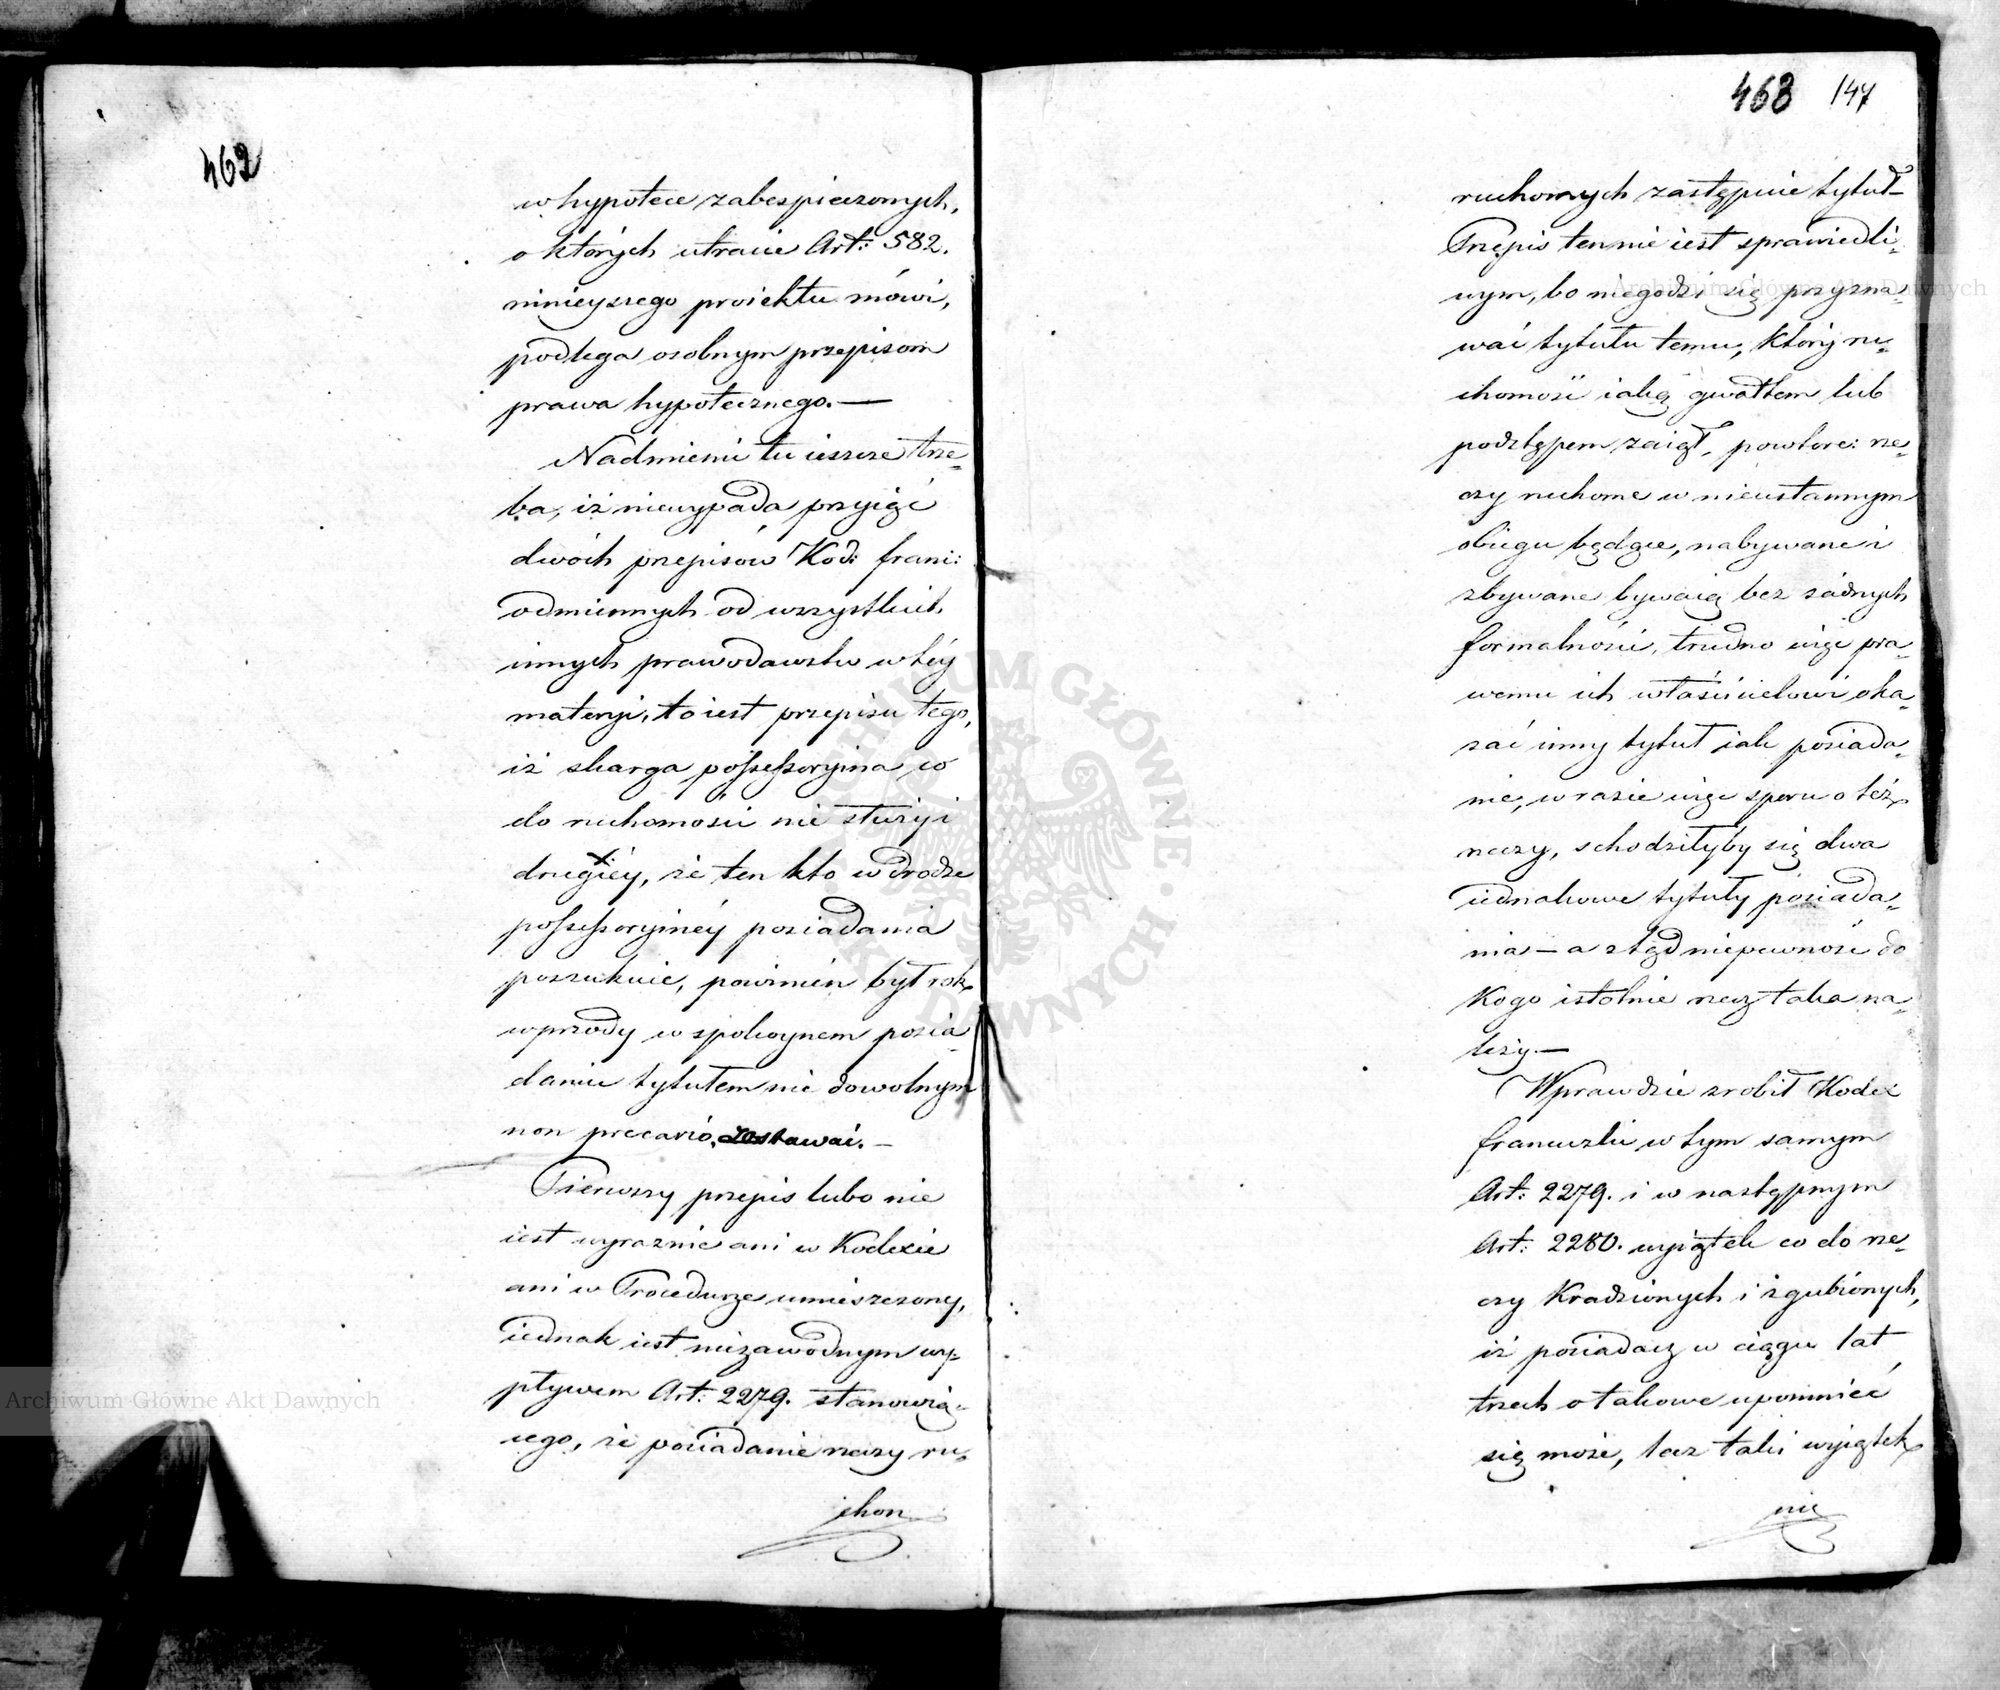 462
w hypotece zabespieczonych,
o których utracie Art: 582.
ninieyszego proiektu mówi,
podlega osobnym przepisom
prawa hypotecznego. —
Nadmienić tu ieszcze trze=
ba, iż niewypada przyiąć
dwóch przepisów Kod: franc:
odmiennych od wszystkich
innych prawodawstw w téy
materyi, to iest przepisu tego,
iż skarga possessoryina co
do ruchomości nie służy i
drugiéy, że ten kto w drodze
possessoryinéy posiadania
poszukuie, powinien był rok
wprzódy w spokoynem posia=
daniu tytułem nie dowolnym
non precario, zostawać. —
Pierwszy przepis lubo nie
iest wyraznie ani w Kodexie
ani w Procedurze umieszczony,
iednak iest niezawodnym wy=
pływem Art: 2279. stanowią=
cego, że posiadanie rzeczy ru=
chom
463 147
ruchomych zastępuie tytuł
Przepis ten nie iest sprawiedli=
wym, bo niegodzi się przyzna=
wać tytułu temu, który ru=
chomość iaką gwałtem lub
podstępem zaiął, powtóre: rze=
czy ruchome w nieustannym
obiegu będące, nabywane i
zbywane bywaią bez żadnych
formalności, trudno więc pra=
wemu ich właścicielowi oka=
zać inny tytuł iak posiada=
nie, w razie więc sporu o też
rzeczy, schodziłyby się dwa
iednakowe tytuły posiada=
nia — a ztąd niepewność do
Kogo istotnie rzecz taka na=
leży. —
Wprawdzie zrobił Kodex
francuzki w tym samym
Art: 2279. i w następnym
Art: 2280. wyiątek co do rze=
czy Kradzionych i zgubionych,
iż posiadacz w ciągu lat
trzech o takowe upomnieć
się może, lecz taki wyiątek
nie
Archiwum Główne Akt Dawnych
Archiwum Główne Akt Dawnych
ARCHIWUM GŁÓWNE AKT DAWNYCH